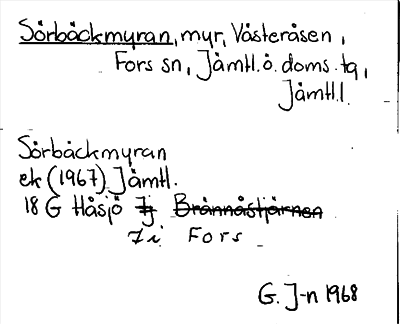 Sörbäckmyran, myr, Västeråsen,
Fors sn, Jämtl.ö.doms.tg,
Jämtl.l.
Sörbäckmyran
ek (1967) Jämtl.
18 G Håsjö Ij Brännåstjärnen
7i Fors
G. J-n 1968